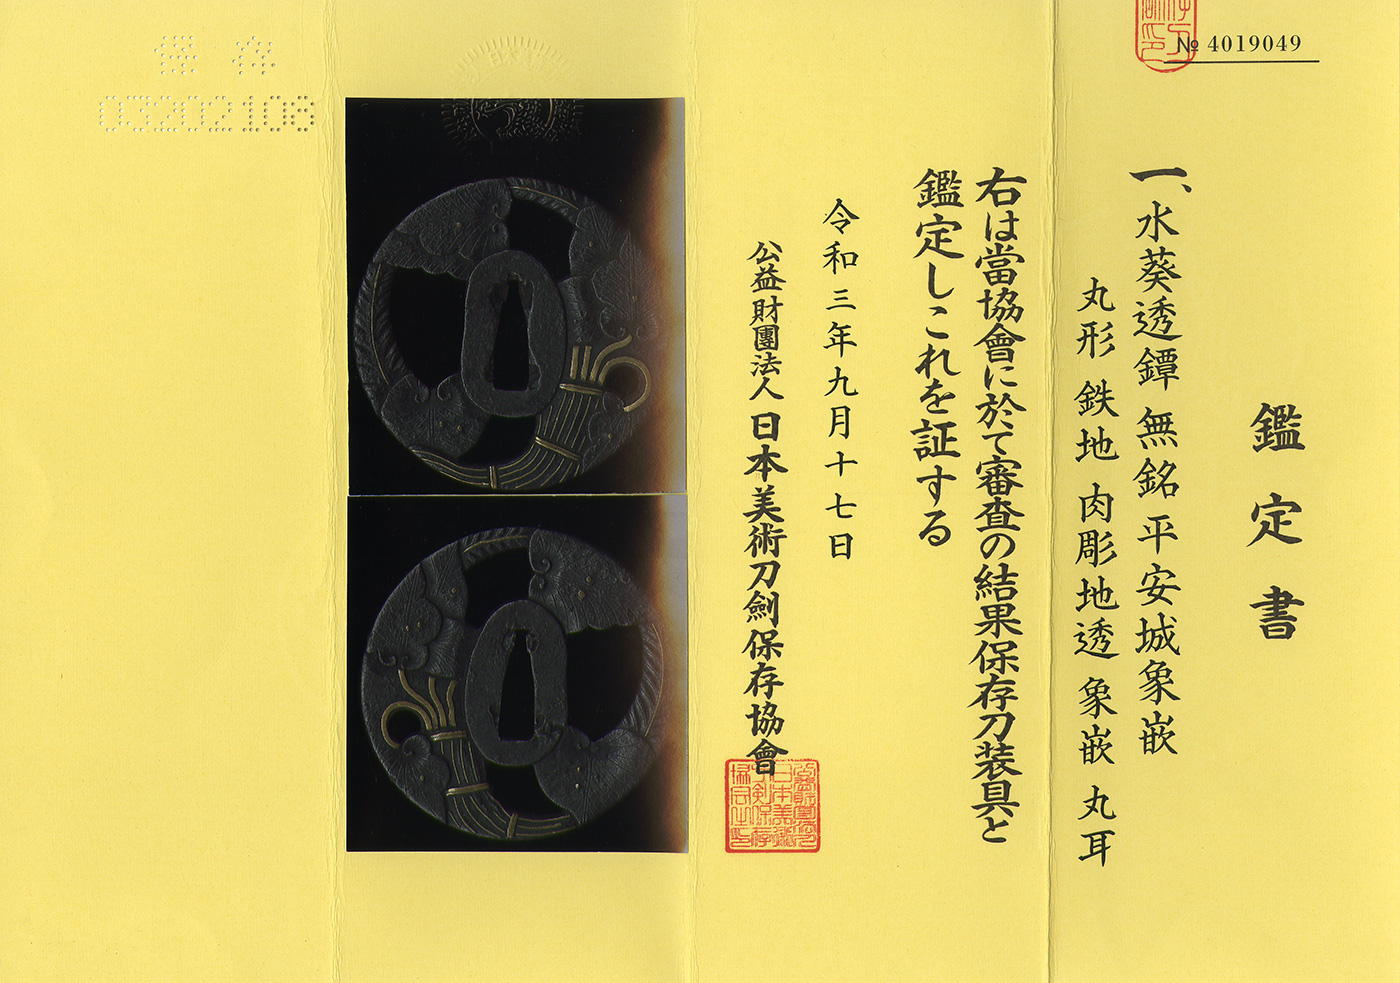 № 4019049
鑑定書
一、水葵透鐔 無銘 平安城象嵌
丸形 鉄地 肉彫地透 象嵌 丸耳
右は當協會に於て審査の結果保存刀装具と
鑑定しこれを証する
令和三年九月十七日
公益財團法人 日本美術刀劍保存協會
保存
03202108